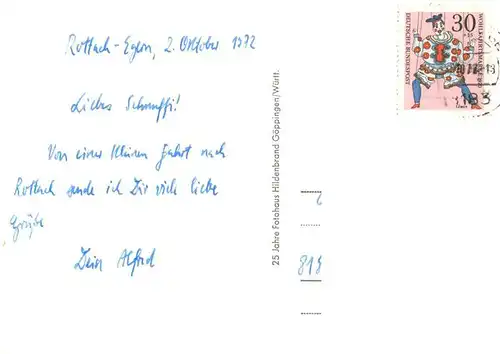 Rottach-Egern, 2. Oktober 1972
Liebes Schnuffi!
Von einer kleinen Fahrt nach
Rottach sende ich Dir viele liebe
Grüße
Dein Alfred
25 Jahre Fotohaus Hildenbrand Göppingen/Württ.
30
+15
WOHLFAHRTSMARKE 1970
DEUTSCHE BUNDESPOST